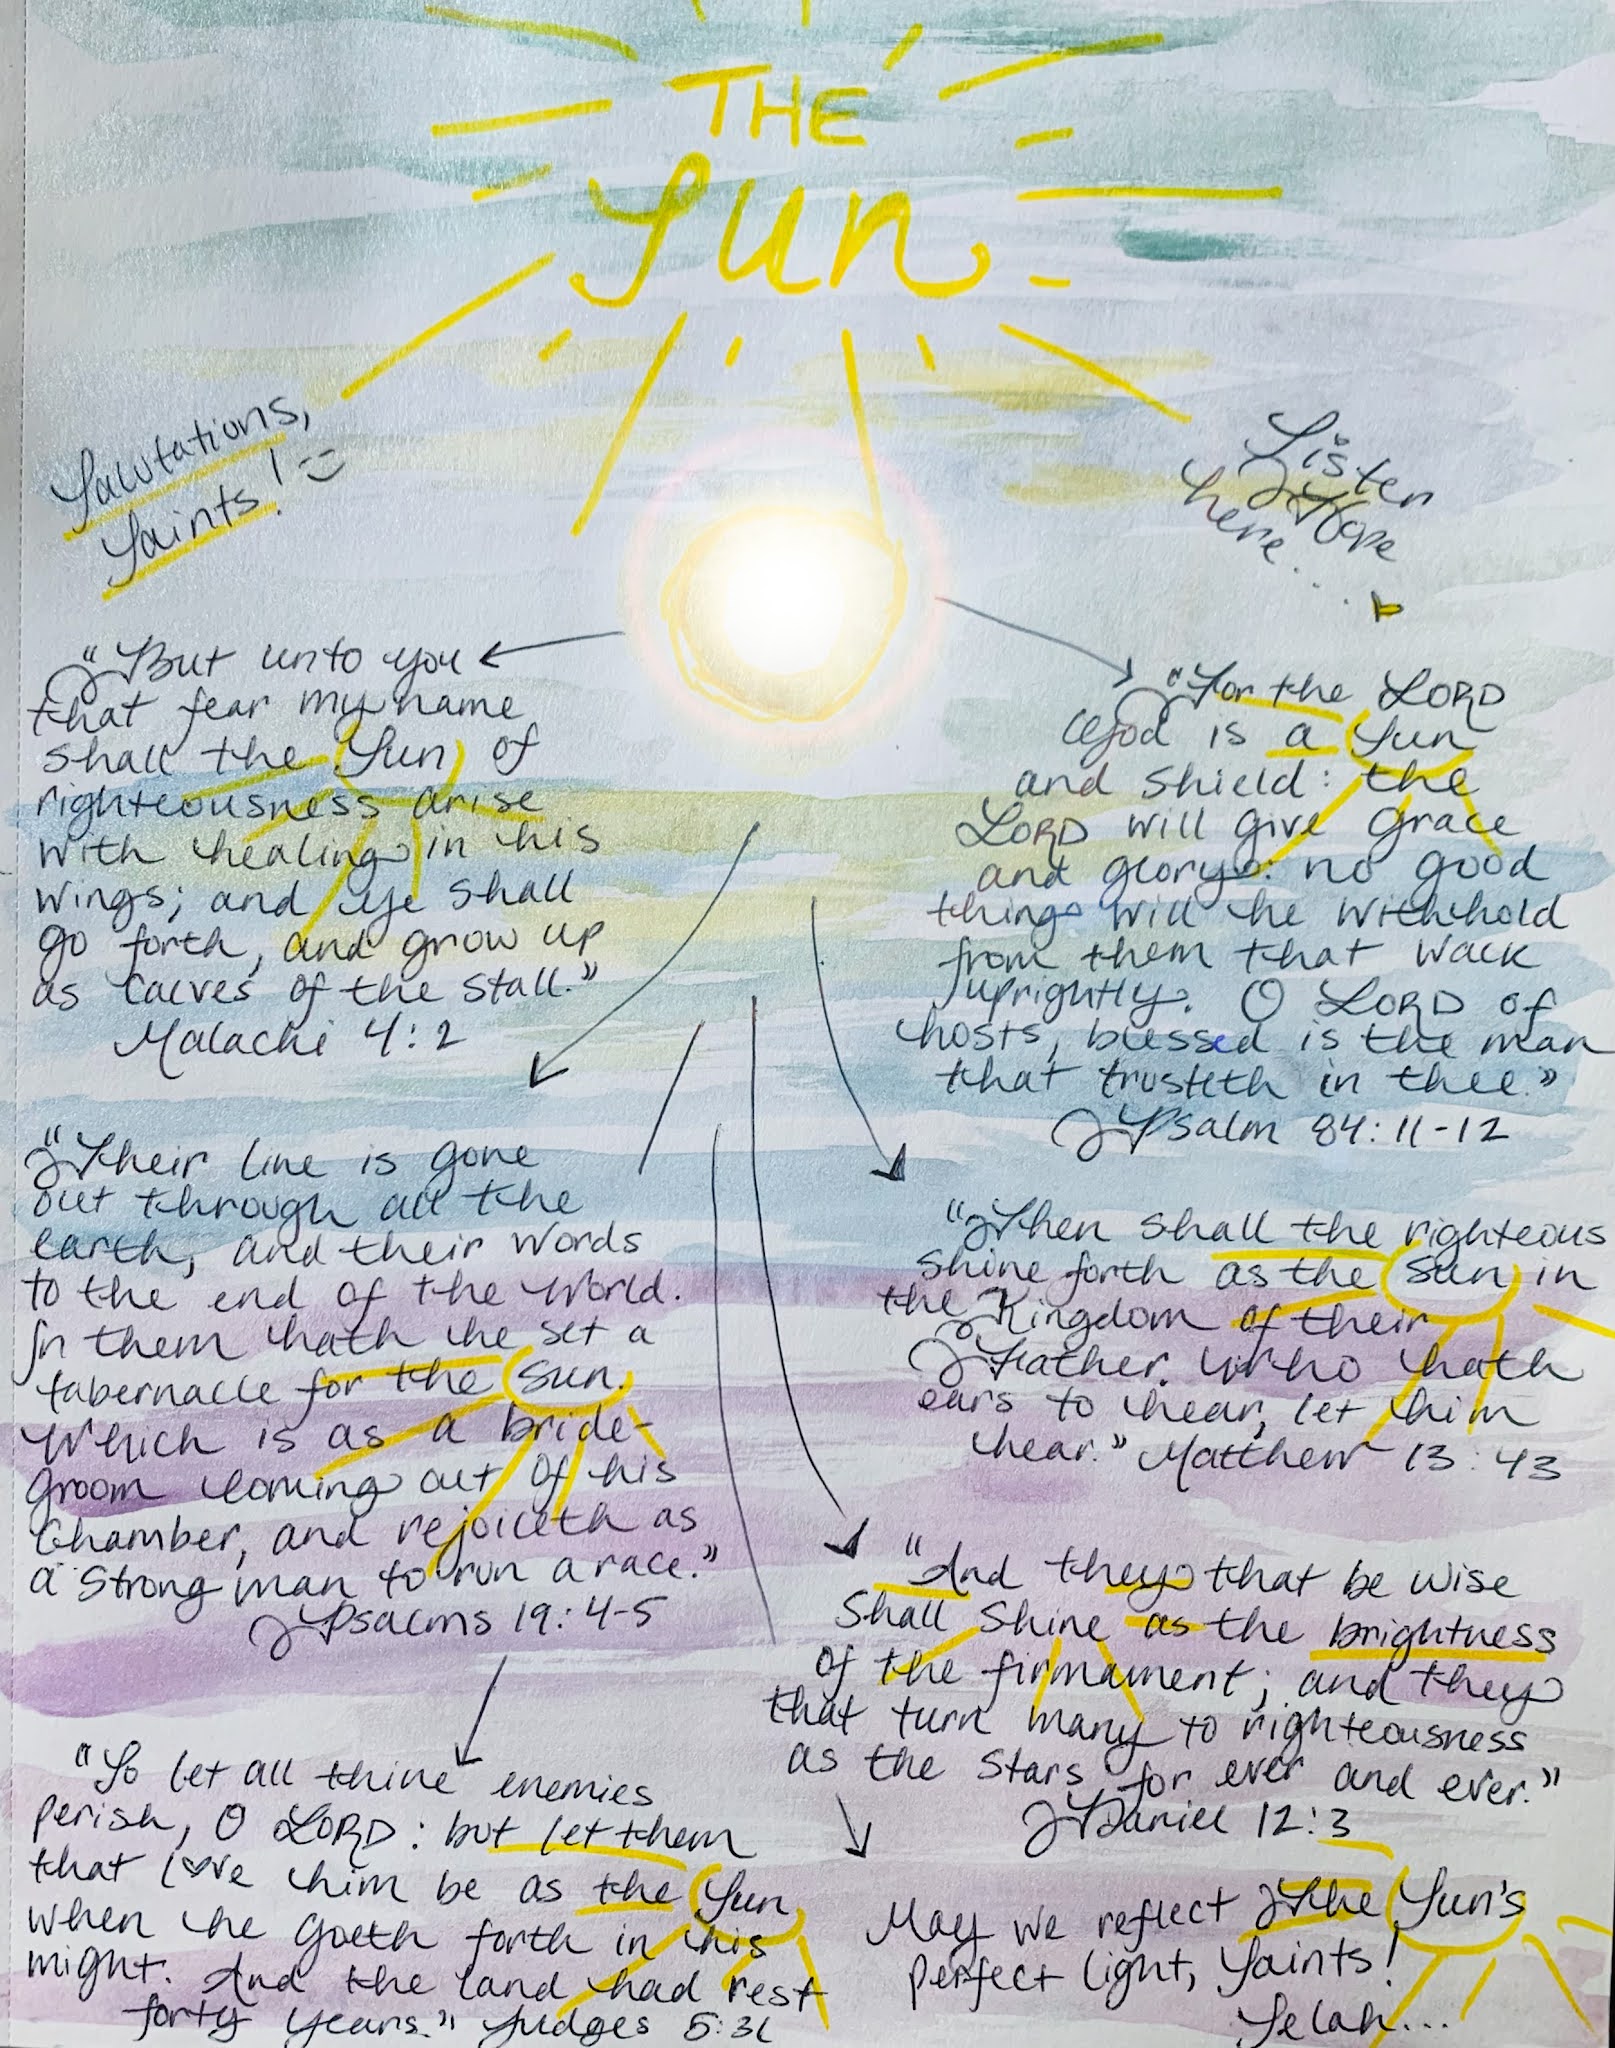 THE
Sun
Salutations,
Saints! :)
Sister
Hope
here...
"But unto you
that fear my name
shall the Sun of
righteousness arise
with healing in his
wings; and ye shall
go forth, and grow up
as calves of the stall."
Malachi 4:2
"For the LORD
God is a Sun
and shield: the
LORD will give grace
and glory: no good
thing will he withhold
from them that walk
uprightly. O LORD of
hosts, blessed is the man
that trusteth in thee."
Psalm 84:11-12
"Their line is gone
out through all the
earth, and their words
to the end of the world.
In them hath he set a
tabernacle for the sun.
Which is as a bride-
groom coming out of his
chamber, and rejoiceth as
a strong man to run a race."
Psalms 19:4-5
"Then shall the righteous
shine forth as the sun in
the Kingdom of their
Father. Who hath
ears to hear, let him
hear." Matthew 13:43
"And they that be wise
shall shine as the brightness
of the firmament; and they
that turn many to righteousness
as the stars for ever and ever."
Daniel 12:3
"So let all thine enemies
perish, O LORD: but let them
that love him be as the Sun
when he goeth forth in his
might. And the land had rest
forty years." Judges 5:31
May we reflect The Sun's
perfect light, Saints!
Selah...